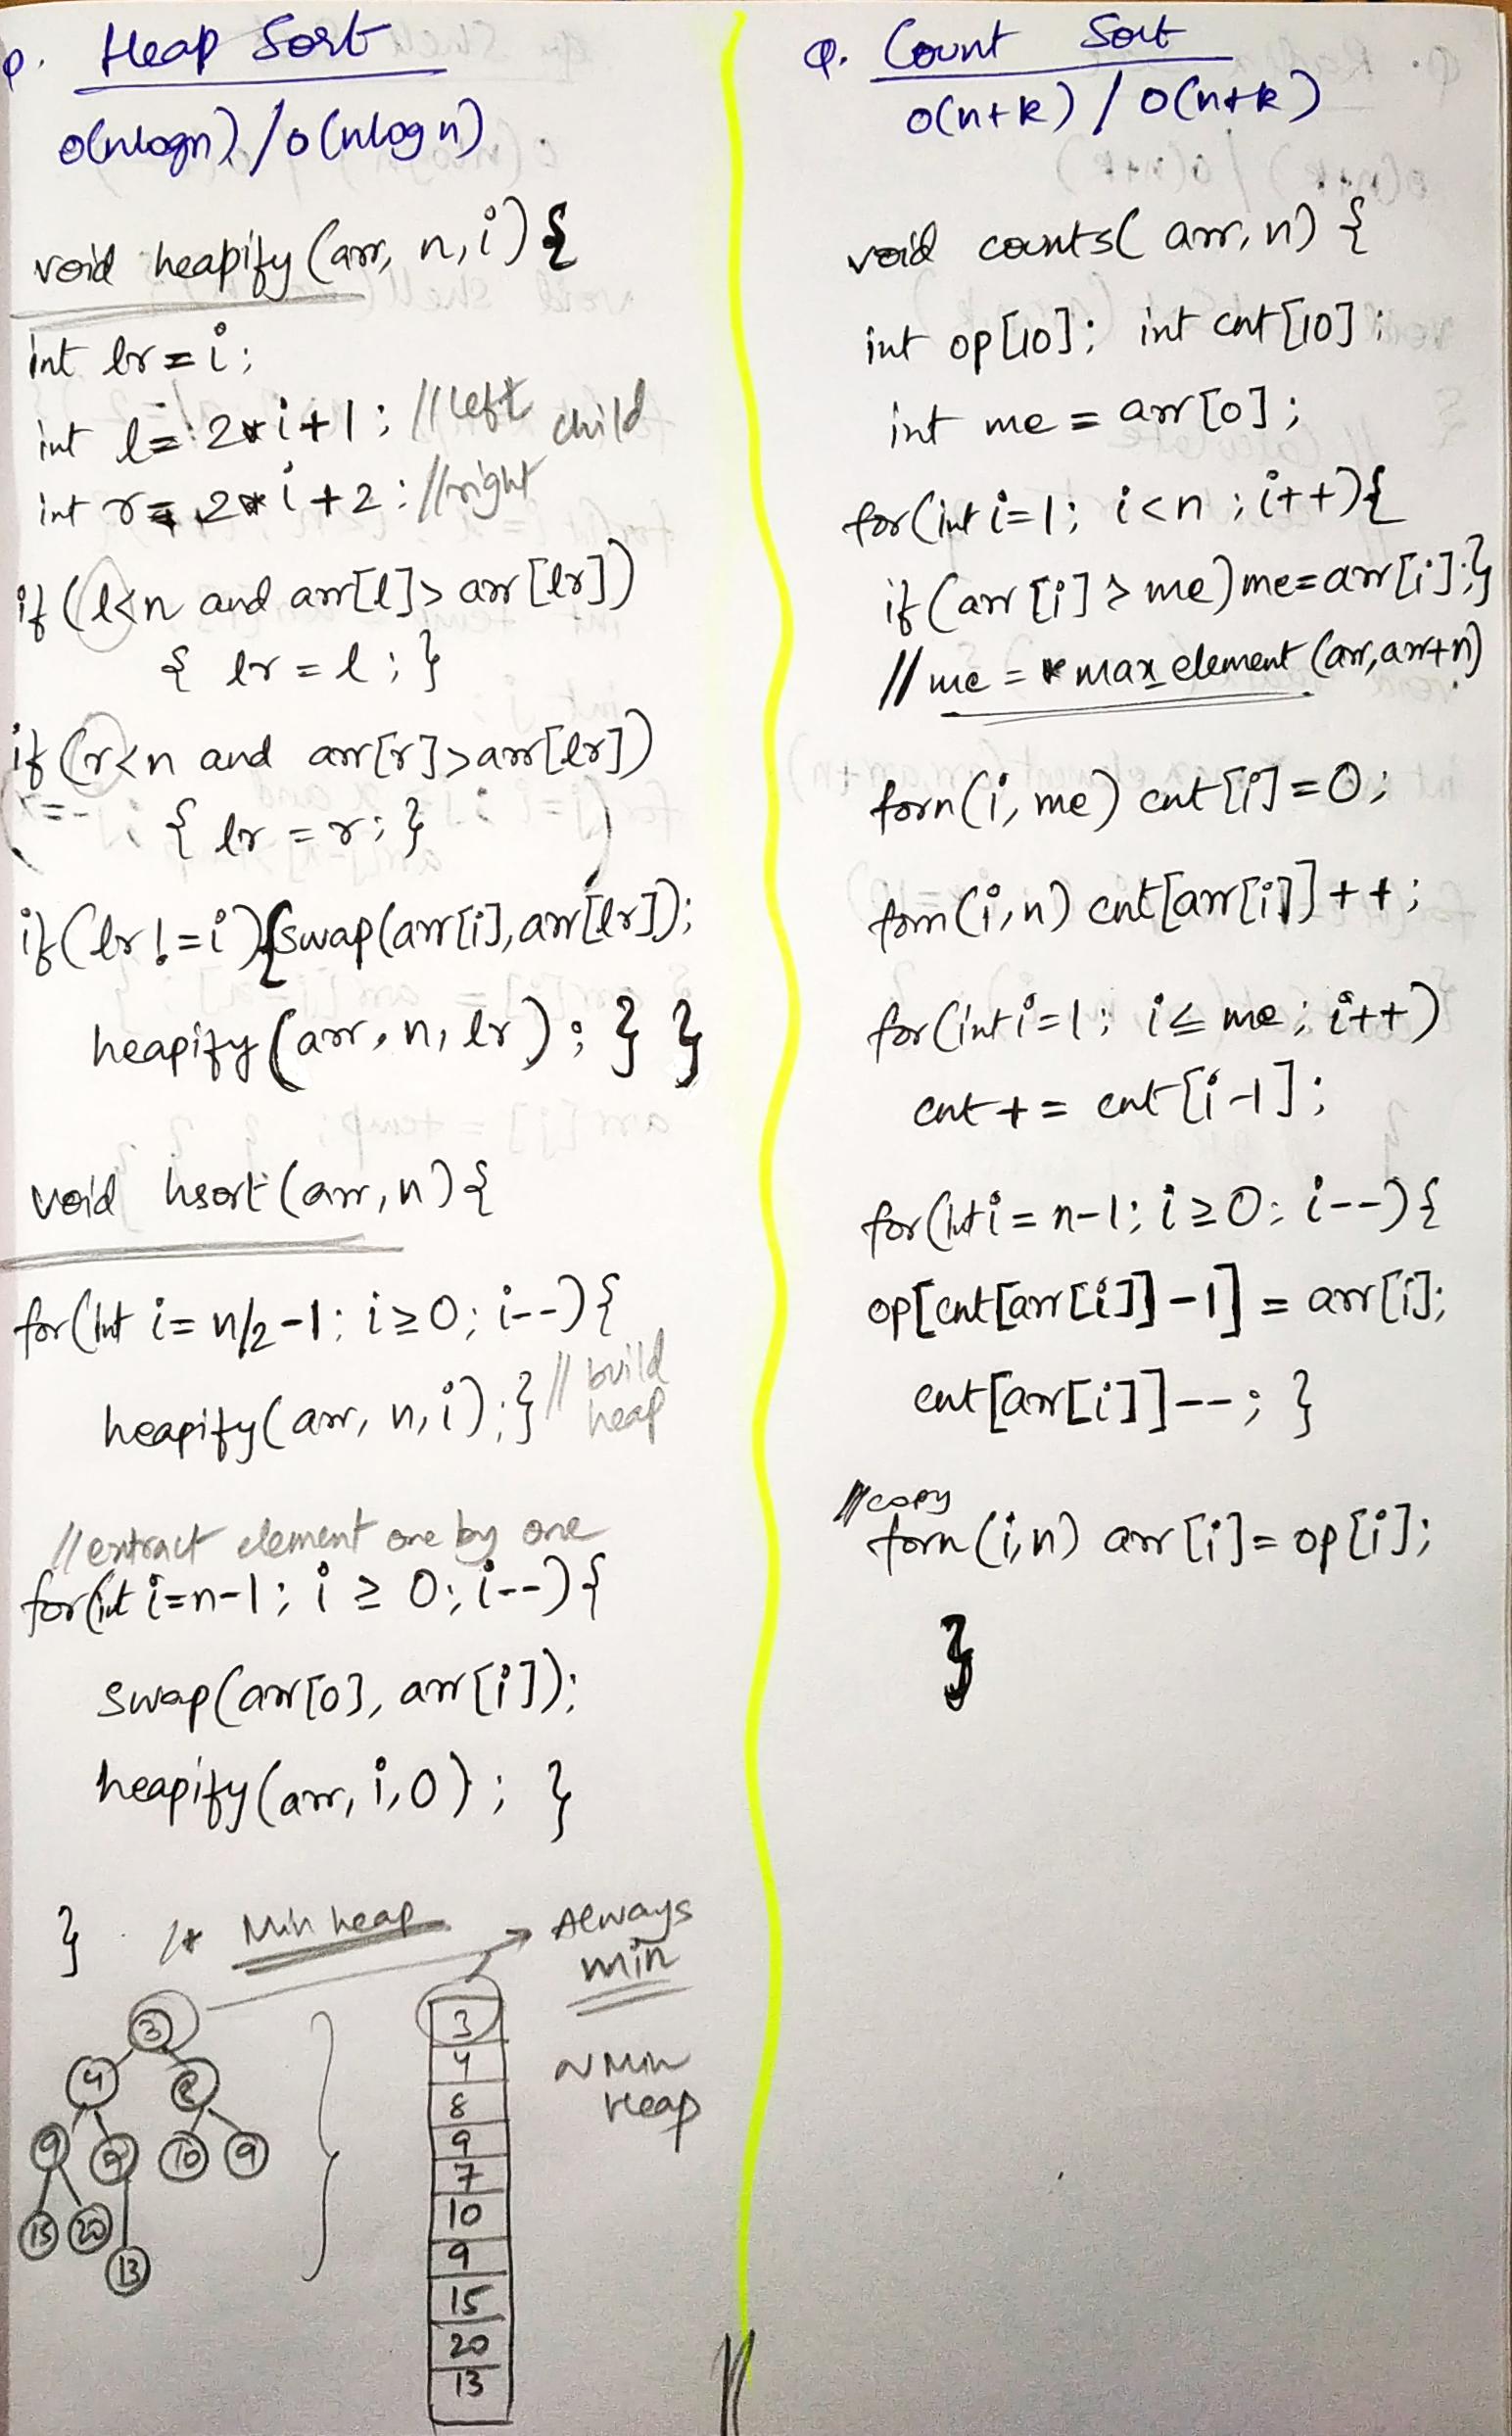 Q. Heap Sort
O(nlogn) / O(nlogn)
void heapify (arr, n, i) {
int lr = i;
int l = 2*i+1; //left child
int r = 2*i+2; //right
if (l<n and arr[l] > arr[lr])
{ lr = l; }
if (r<n and arr[r] > arr[lr])
{ lr = r; }
if (lr != i) {swap(arr[i], arr[lr]);
heapify (arr, n, lr); } }
void hsort (arr, n) {
for(int i = n/2-1; i ≥ 0; i--) {
heapify(arr, n, i); } // build heap
//extract element one by one
for(int i=n-1; i ≥ 0; i--) {
swap(arr[0], arr[i]);
heapify(arr, i, 0); }
} /* Min heap → Always
min
3
4
8
9
10
9
15
20
13
3
4
8
9
7
10
9
15
20
13
~ Min
Heap
Q. Count Sort
O(n+k) / O(n+k)
void counts( arr, n) {
int op[10]; int cnt[10];
int me = arr[0];
for(int i=1; i<n; i++){
if(arr[i] > me) me=arr[i];}
// me = *max_element (arr, arr+n)
forn(i, me) cnt[i]=0;
forn(i, n) cnt[arr[i]]++;
for(int i=1; i ≤ me; i++)
cnt += cnt[i-1];
for(int i = n-1; i ≥ 0; i--) {
op[cnt[arr[i]]-1] = arr[i];
cnt[arr[i]]--; }
//copy
forn(i,n) arr[i]= op[i];
}